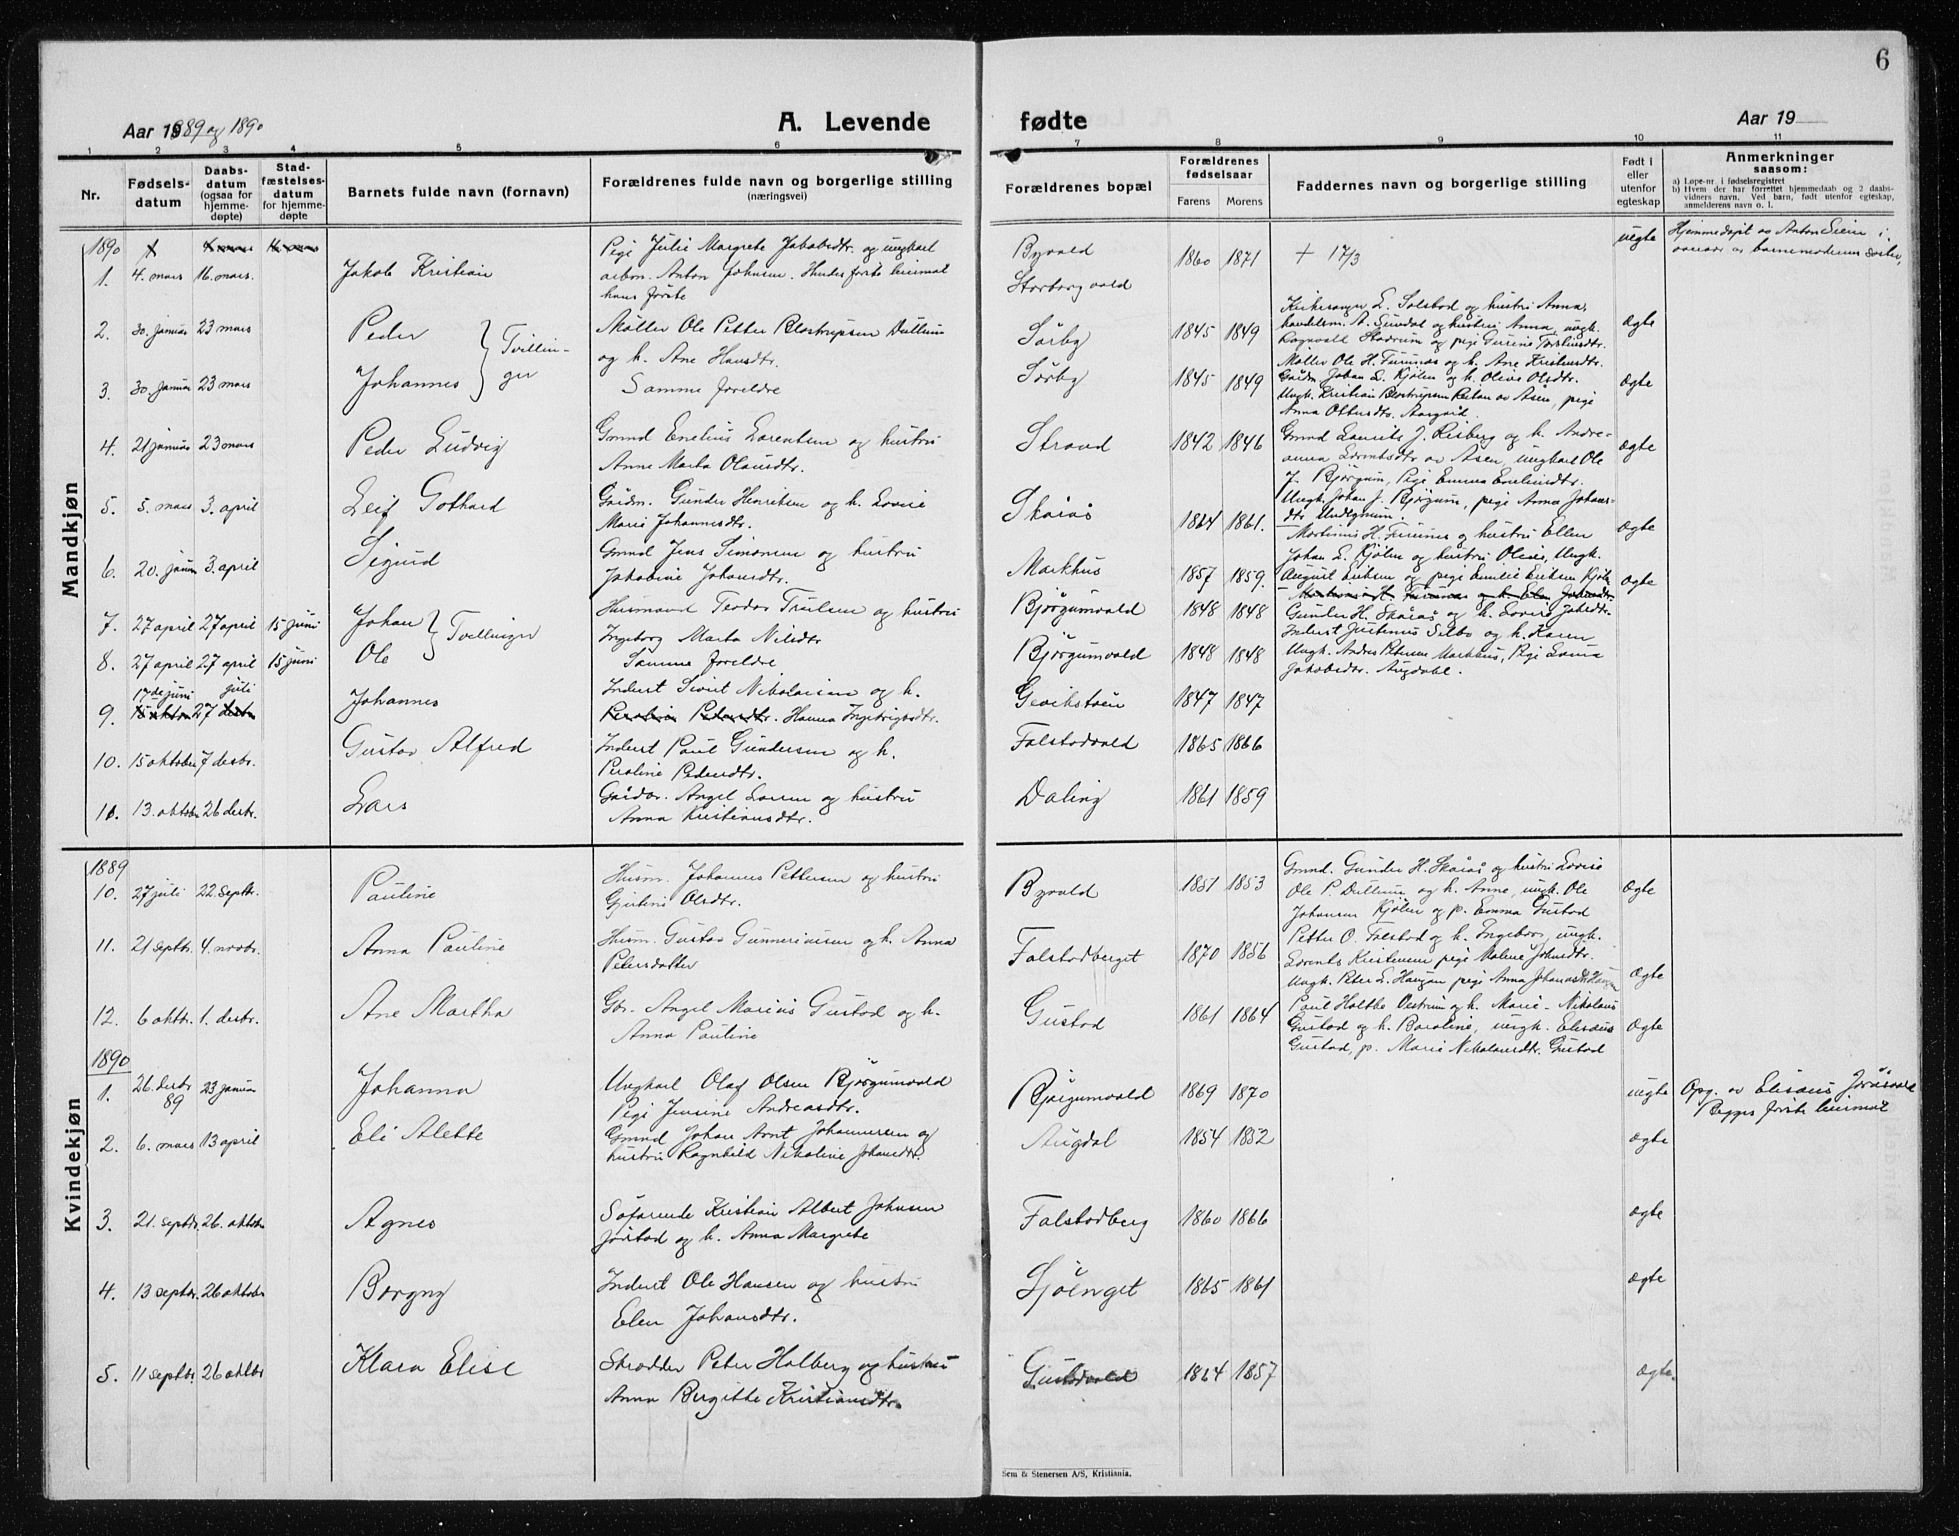 6
Aar 1889 og 1890
A. Levende fødte
Aar 19
1 2 3 4 5 6 7 8 9 10 11
Nr.
Fødsels-
datum
Daabs-
datum
(ogsaa for
hjemme-
døpte)
Stad-
fæstelses-
datum
for hjemme-
døpte
Barnets fulde navn (fornavn)
Forældrenes fulde navn og borgerlige stilling
(næringsvei)
Forældrenes bopæl
Forældrenes
fødselsaar
Farens Morens
Faddernes navn og borgerlige stilling
Født i
eller
utenfor
egteskap
Anmerkninger
saasom:
a) Løpe-nr. i fødselsregistret
b) Hvem der har forrettet hjemmedaab og 2 daabs-
vidners navn. Ved barn, født utenfor egteskap,
anmelderens navn o. l.
Mandkjøn
1890
1. 4. mars 16. mars. Jakob Kristian
Pige Julie Margrete Jakobsdtr. og ungkarl
arbm. Anton Johnsen. Hendes første leiermal
hans første
Byvald
Storborgvald
1860 1871 + 17/3 uegte
Hjemmedøpt av Anton Seem i
nærvær av barnemoderens søster,
2. 30. januar 23 mars Peder } Tvillin-
Møller Ole Petter Blostrupsen Dullum
og h. Ane Hansdtr.
Sørby 1845 1849
Kirkesanger L. Salstad og hustru Anna,
handelsm. A. Sundal og hustru Anna, ungk.
Ragnvald Stadrum og pige Gurine Torstensdtr.
ægte
3. 30. januar 23 mars Johannes } ger
Samme foreldre
Sørby 1845 1849
Møller Ole H. Furunes og h. Ane Kristensdtr.
Gårdm Johan L. Kjølen og h. Olive Olsdtr.
Ungk. Kristian Blostrupsen Reitan av Åsen, pige
Anna Ottersdtr. Aargård.
ægte
4. 21 januar 23 mars Peder Ludvig
Grmnd Enelius Lorentsen og hustru
Anne Marta Olausdtr.
Strand 1842 1846
Grmnd Laurits J. Risberg og h. Andre-
anna Lorentsdtr av Åsen, ungkarl Ole
J. Bjørgum, Pige Emma Eneliusdtr.
ægte
5. 5. mars 3. april Leif Gothard
Gårdm. Gunder Henriksen og h. Lovise
Marie Johannesdtr.
Skårås 1864 1861.
Ungk. Johan J. Bjørgum, pige Anna Johans-
dtr
Martinus H. Furunes og hustru Ellen
ægte
6. 20. januar 3. april Sigurd
Grmnd Jens Simonsen og hustru
Jakobine Johansdtr.
Markhus 1857 1859.
Johan L. Kjølen og hustru Olive, Ungk.
August Eriksen og pige Emilie Eriksen Kjøln
ægte
7. 27 april 27 april 15 juni Johan } Tvillinger
Husmand Teodor Trulsen og hustru
Ingeborg Marta Nilsdtr
Bjørgumvald 1848 1848
Gunder H. Skårås og h. Lovise Johsdtr.
Inderst Justinus Selbo og h. Karen
8. 27 april 27 april 15 juni Ole
Samme foreldre
Bjørgumvald 1848 1848
Ungk. Anders Petersen Markhus, Pige Laura
Jakobsdtr. Augdahl.
9. 17de juni 27 juli Johannes
Inderst Sivert Nikolaisen og h.
Hanna Ingebrigtsdtr.
1847 1847
10. 15 oktober 7 desbr. Gustav Alfred
Inderst Paul Gundersen og h.
Peroline Pedersdtr.
Falstadvald 1865 1866
10. 13. oktober 26 desbr. Lars
Gårdbr. Angel Larsen og hustru
Anna Kristiansdtr.
Daling 1861 1859
Kvindekjøn
1889
10. 27 juli 22 septbr. Pauline
Husm. Johannes Pettersen og hustru
Gjertine Olsdtr.
Byvald 1851 1853
Grmnd. Gunder H. Skårås og hustru Lovise
Ole P. Dullum og h. Anne, ungk. Ole
Johansen Kjølen og p. Emma Gustad
ægte
11. 21 septbr. 4. novbr. Anna Pauline
Husm. Gustav Gunneriussen og h. Anna
Petersdatter
Falstadberget 1870 1856
Petter O. Falstad og h. Ingeborg, ungk.
Lorents Kristensen pige Malene Johnsdtr.
Ungk. Peter L. Haugan pige Anna Johansdtr Haugan
ægte
12. 6 oktbr. 1. desbr. Ane Martha
Gbr. Angel Marius Gustad og h.
Anna Pauline
Gustad 1861 1864
Paul Holtbe Vestrum og h. Marie - Nikolaus
Gustad og h. Baroline, ungk. Elisæus
Gustad, p. Marie Nikolausdtr. Gustad
ægte
1890
1. 26. desbr 89 23 januar Johanna
Ungkarl Olaf Olsen Bjørgumvald
Pige Jensine Andreasdtr.
Bjørgumvald 1869 1870 uegte
Opg. av Elisæus
Begges første leiermal
2. 6. mars 13 april Eli Alette
Grmnd Johan Arnt Johannesen og
hustru Ragnhild Nikoline Johansdtr.
Augdal 1854 1852 ægte
3. 21. septbr. 26. oktober Agnes
Søfarende Kristian Albert Johnsen
Jørstad og h. Anna Margrete
Falstadberg 1860 1866 ægte
4. 13 septbr. 26 oktober Borgny
Inderst Ole Hansen og hustru
Elen Johansdtr.
Sjøenget 1865 1861 ægte
5. 11 septbr. 26 oktbr Klara Elise
Skrædder Peter Halberg og hustru
Anna Birgitte Kristiansdtr.
Gustadvald 1864 1857 ægte.
Sem & Stenersen A/S, Kristiania.